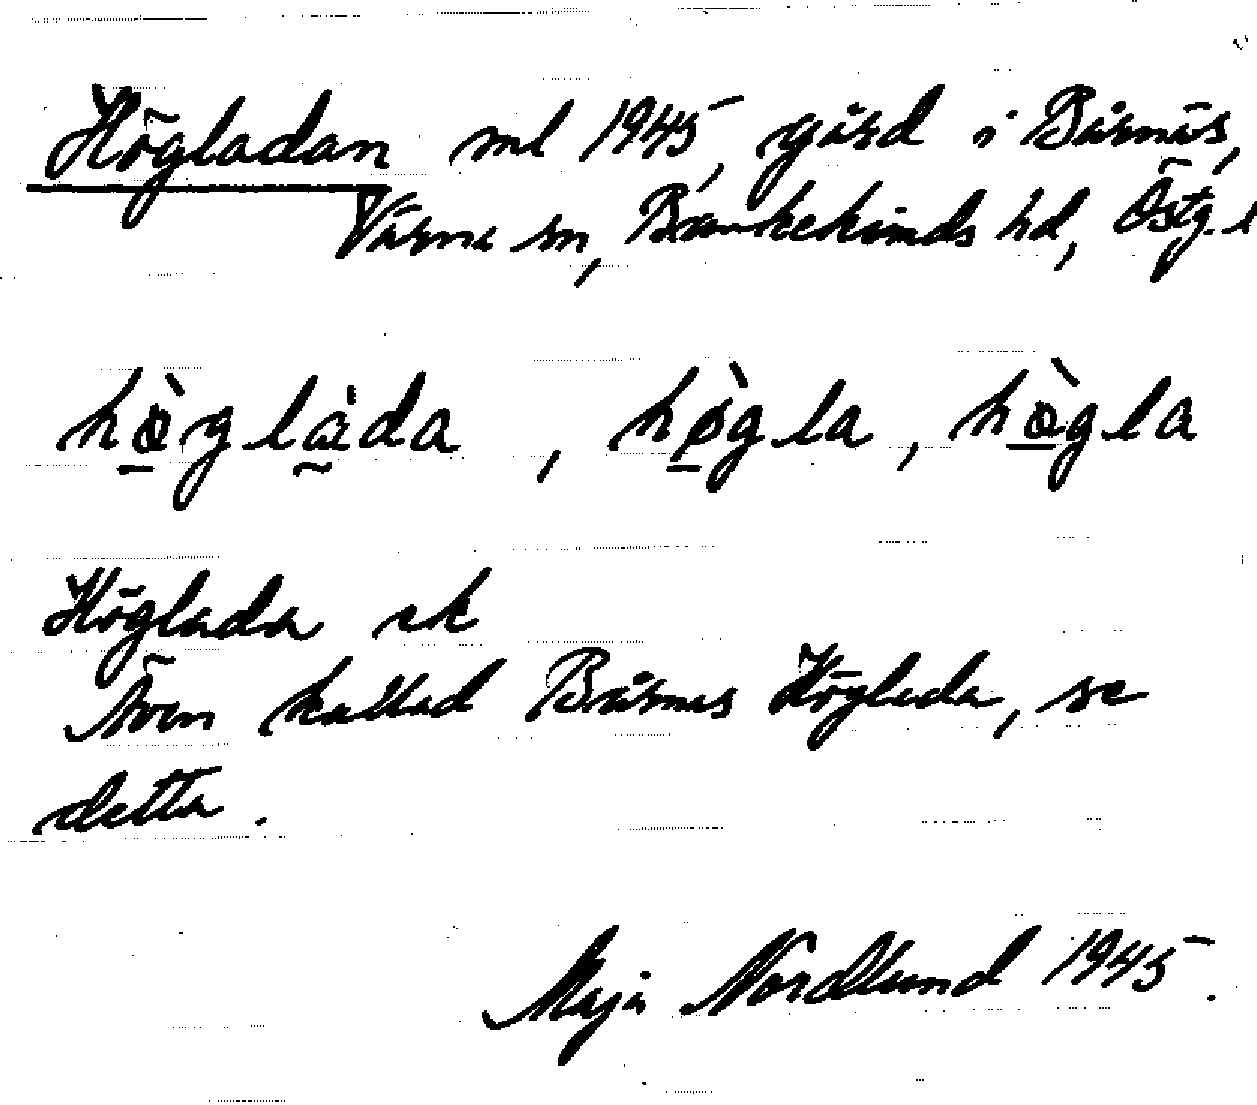 Högladan ml 1945, gård i Bårnäs,
Vårna sn, Bankekinds hd, Östg. l
hö̀glàda, hø̀gla, hö̀gla
Höglada ek
Även kallad Bårnäs Höglada, se
detta.
Maja Nordlund 1945.